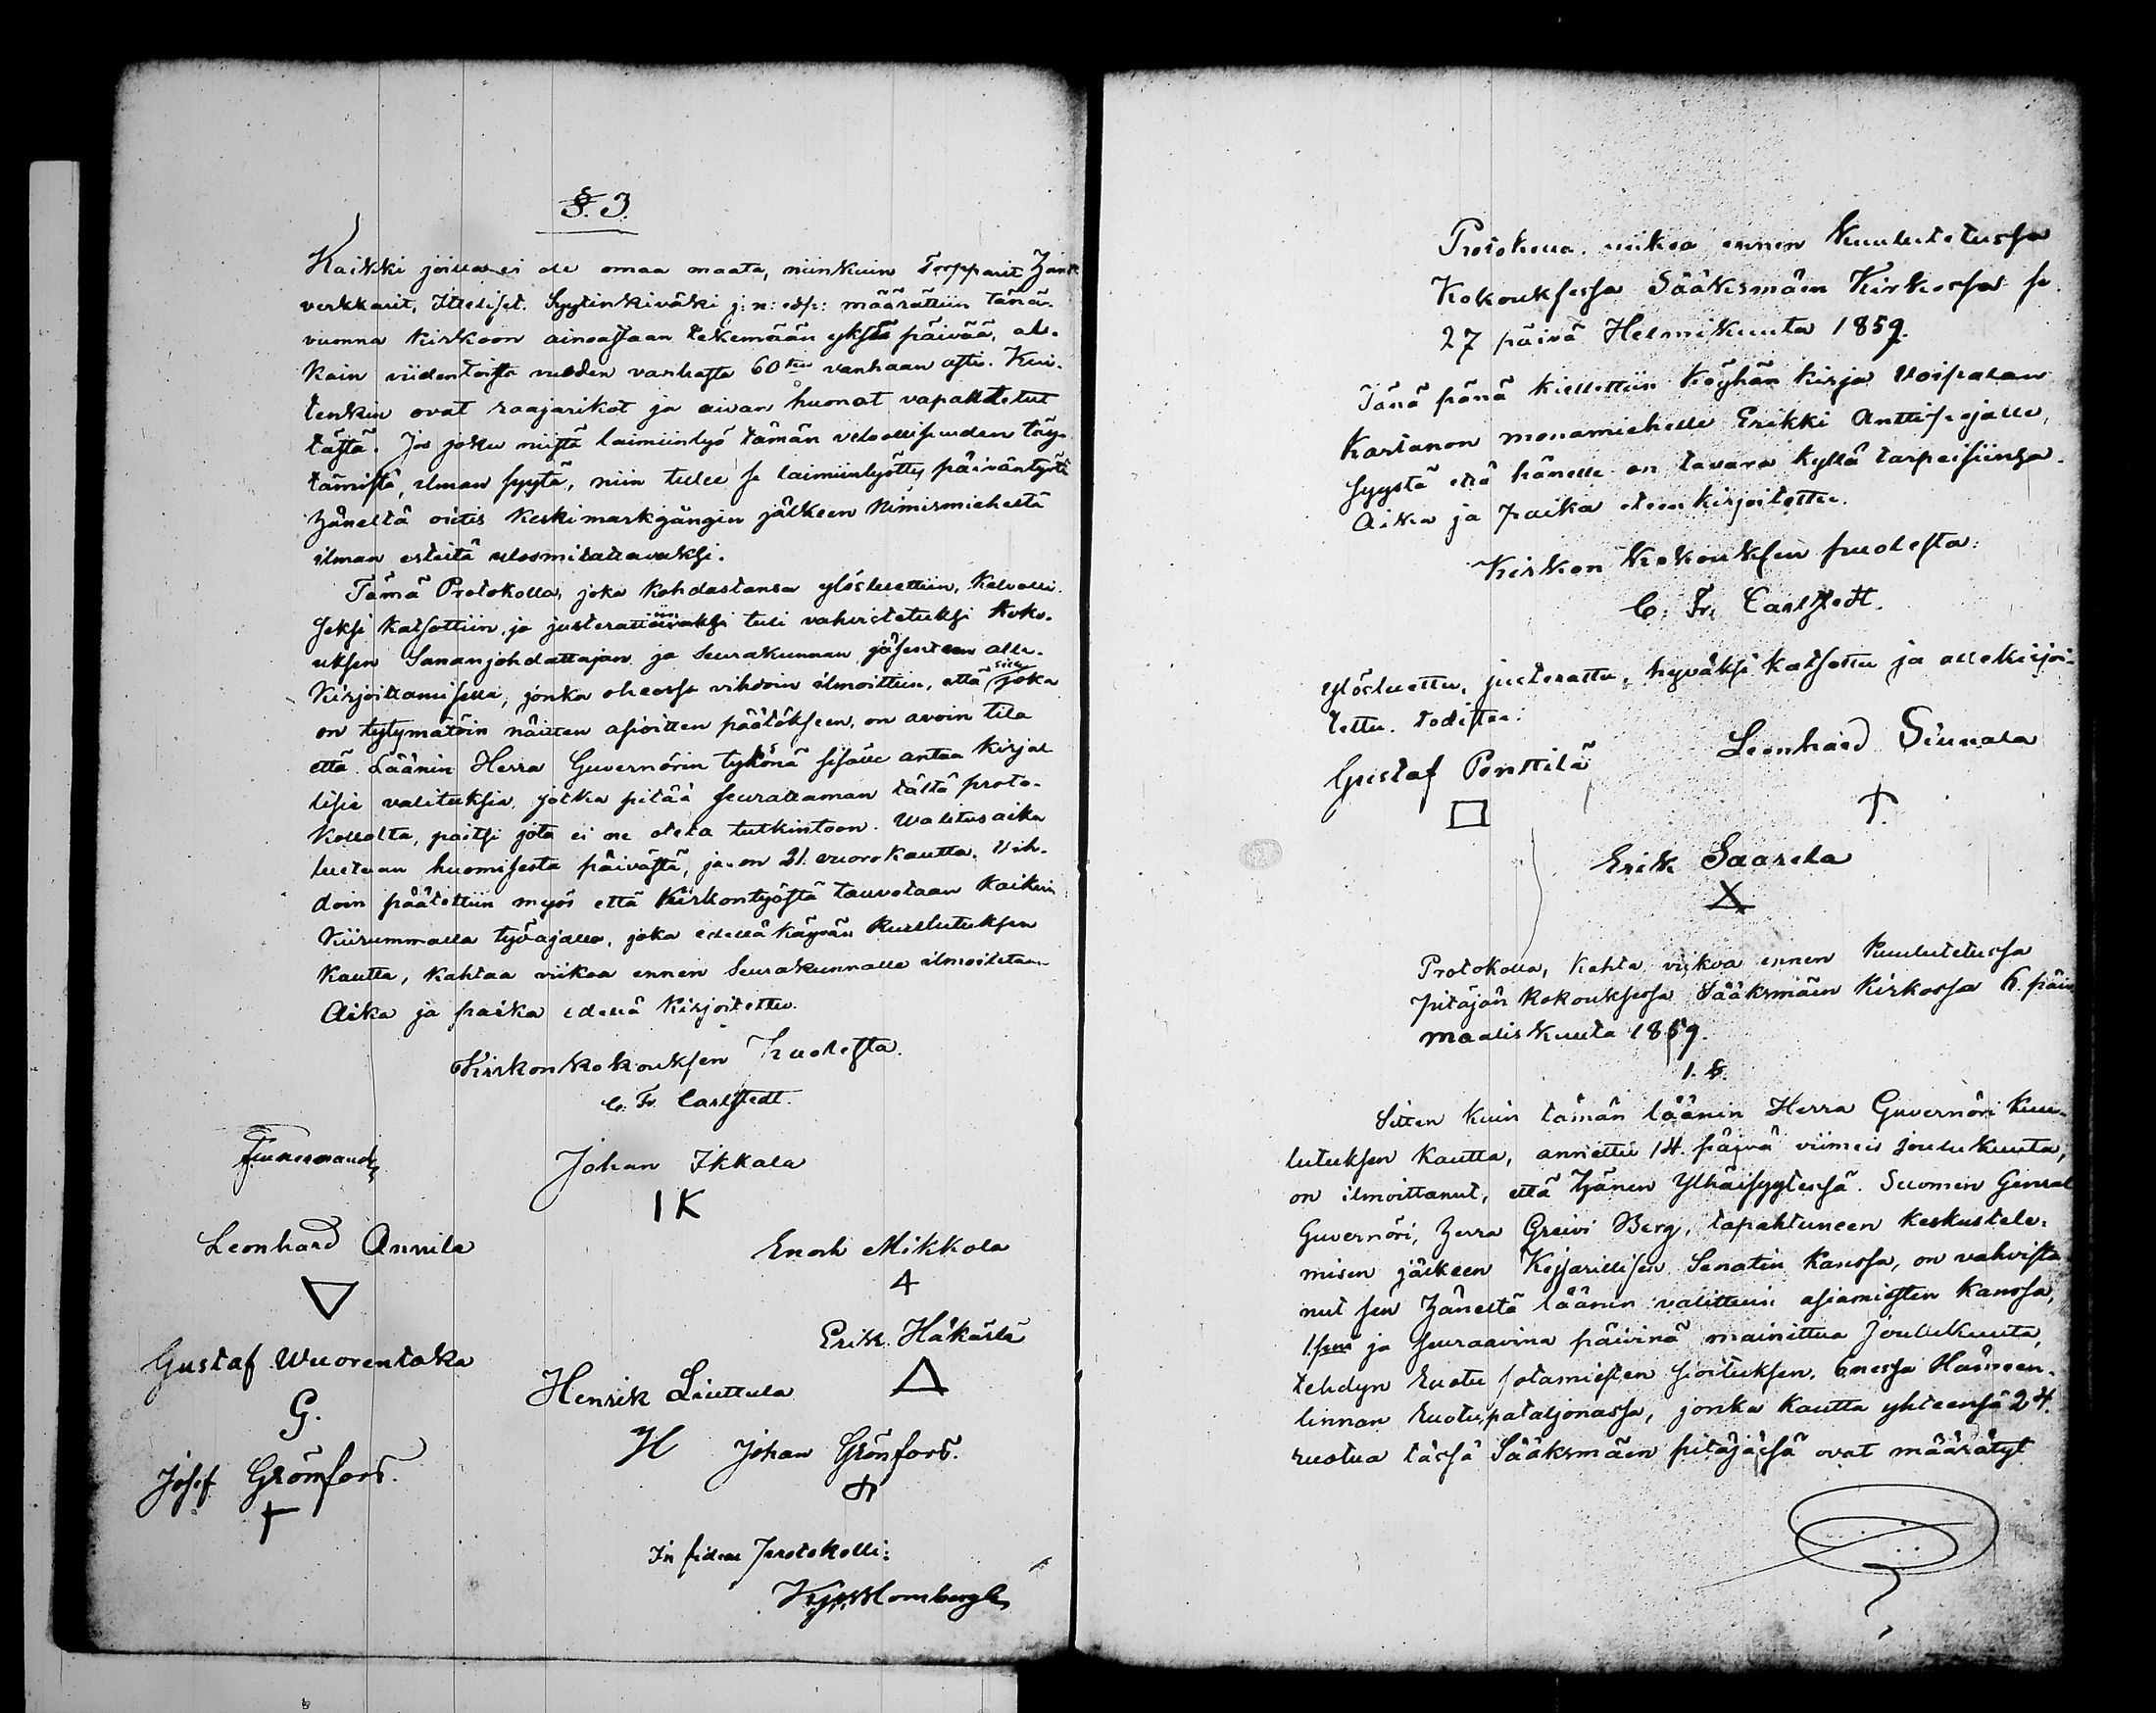 §. 3.
Kaikki joilla ei ole omaa maata, niinkuin Torpparit Hant-
verkkarit, Itteliset. Syytinkiväki j: n: edsp: määrättiin tänä-
vuonna kirkoon ainoastaan tekemään yksi päivää, al-
kain viidentoista vuoden vanhasta 60ten vanhaan asti. Kui-
tenkin ovat raajarikot ja aivan huonot vapahdetut
tästä. Jos joku niistä laimiinlyö tämän velvollisuuden täy-
tämistä, ilman syytä, niin tulee se laimiinlyötty päiväntyötä
häneltä oitis keskimarkgångin jälkeen Nimismieheltä
ilman esteitä ulosmitattavaksi.
Tämä Protokolla, joka kohdastansa ylösluettiin, kelvolli-
seksi katsottiin, ja justerattiin tuli vahvistetuksi koko-
uksen Sananjohdattajan ja Seurakunnan jäsenten alle-
kirjoittamisella, jonka ohessa vihdoin ilmoittiin, että joka
on tytymätöin näitten asioitten päätökseen, on avoin tila
että Läänin Herra Guvernörin tykönä sisälle antaa kirjal
lisia valituksia, jotka pitää seurattaman tältä proto-
kollalta, paitsi jota ei ne oteta tutkintoon. Walitusaika
luetaan huomisesta päivästä, ja on 21. vuorokautta. Vih-
doin päätettiin myös että Kirkontyöstä tauvotaan kaikein
kiirummalla työajalla, joka edelläkäyvän Kuullutuksen
kautta, kahtaa viikoa ennen Seurakunnalle ilmoitetaan
Aika ja paika edellä kirjoitettu.
Kirkonkokouksen Puolesta.
C. Fr. Carlstedt.
Johan Ikkala
IK
Leonhard Annila
Enoch Mikkola
4
Erik Häkäilä
Gustaf Wuorentaka
G.
Henrik Liuttula
H
Johan Grönfors.
Josef Grönfors.
In fidem Protokolli:
Protokolla viikoa ennen kuulutetussa
Kokouksessa Sääksmäen Kirkossa se
27 päivä Helmikuuta 1859.
Tänä pänä kiellettiin köyhän kirja Voipalan
Kartanon monamiehelle Erikki Anttipojalle,
syystä että hänelle on tavara kyllä tarpeisiinsa.
Aika ja paika eteen kirjoitettu.
Kirkon Kokouksen puolesta:
C. Fr. Carlstedt.
Ylösluettu, justerattu, hyväksi katsottu ja allekirjoi-
tettu. todistaa:
Gustaf Penttilä
Leonhard Siukola
Erik Saarela
Protokolla, kahta viikoa ennen kuulutetussa
pitäjän kokouksessa Sääksmäen Kirkossa 6. päiv
maaliskuuta 1859.
1. §.
Sitten kuin tämän läänin Herra Guvernöri kuu-
lutuksen kautta, annettu 14. päivä viimeis joulukuuta,
on ilmoittanut, että Hänen Ylhäisyytessä. Suomen General
Guvernöri, Herra Greivi Berg, tapahtuneen keskustele-
misen jälkeen Keisarillisen Senatin kanssa, on vahvista
nut sen Häneltä läänin valittuin asiamiesten kanssa,
1senä ja seuraavina päivinä mainittua Joulukuuta,
tehdyn Ruotu sotamiesten sioituksen, 6nessa Hämeen-
linnan Ruotupataljonassa, jonka kautta yhteensä 24.
ruotua tässä Sääksmäen pitäjässä ovat määrätyt